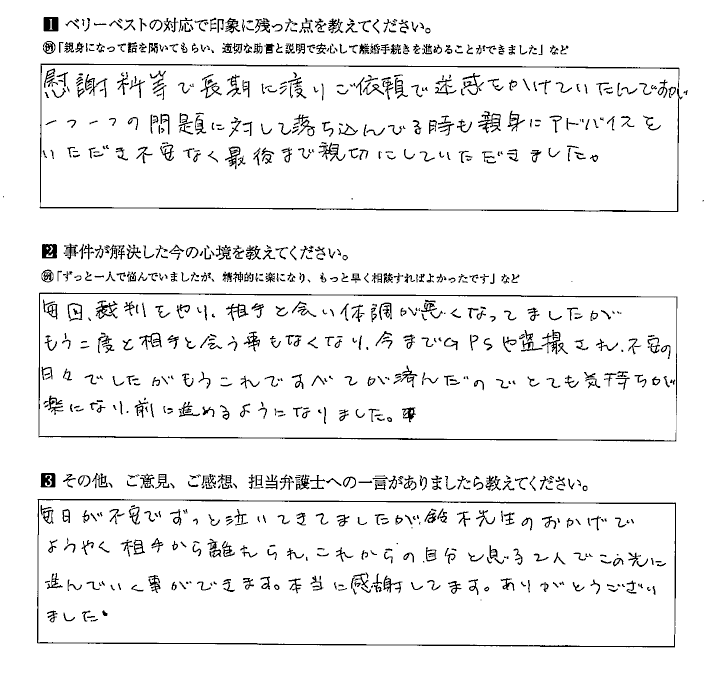 1 ベリーベストの対応で印象に残った点を教えてください。
例「親身になって話を聞いてもらい、適切な助言と説明で安心して離婚手続きを進めることができました」など
慰謝料等で長期に渡りご依頼で迷惑をかけていたんですが
一つ一つの問題に対して落ち込んでる時も親身にアドバイスを
いただき不安なく最後まで親切にしていただきました。
2 事件が解決した今の心境を教えてください。
例「ずっと一人で悩んでいましたが、精神的に楽になり、もっと早く相談すればよかったです」など
毎回、裁判をやり、相手と会い体調が悪くなってましたが
もう二度と相手と会う事もなくなり、今までGPSや盗撮され、不安の
日々でしたがもうこれですべてが済んだのでとても気持ちが
楽になり、前に進めるようになりました。
3 その他、ご意見、ご感想、担当弁護士への一言がありましたら教えてください。
毎日が不安でずっと泣いてきてましたが、鈴木先生のおかげで
ようやく相手から離れられ、これからの自分と息子2人でこの先に
進んでいく事ができます。本当に感謝してます。ありがとうござい
ました。